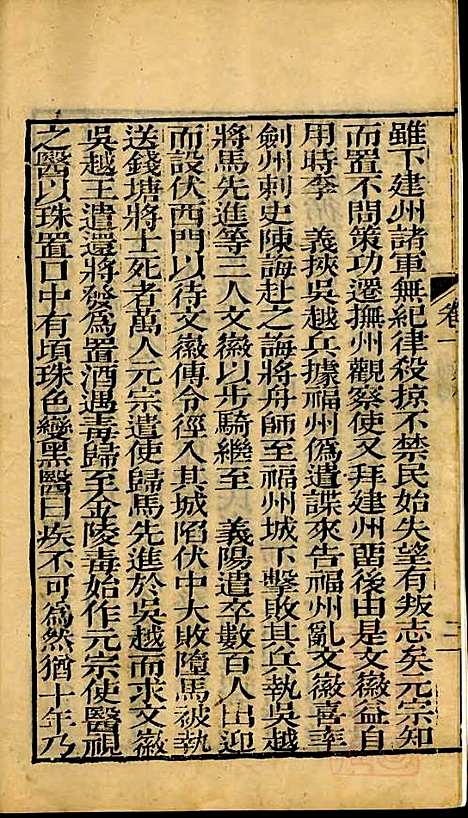 雖下建州諸軍無紀律殺掠不禁民始失望有叛志矣元宗知
而置不問策功遷撫州觀察使又拜建州畱後由是文徽益自
用時李 義挾吳越兵據福州僞遣諜來告福州亂文徽喜率
劍州刺史陳誨赴之誨將舟師至福州城下擊敗其兵執吳越
將馬先進等三人文徽以步騎繼至 義陽遣卒數百人出迎
而設伏西門以待文徽傳令徑入其城陷伏中大敗墮馬被執
送錢塘將士死者萬人元宗遣使歸馬先進於吳越而求文徽
吳越王遣還將發爲置酒遇毒歸至金陵毒始作元宗使醫視
之醫以珠置口中有頃珠色變黑醫曰疾不可爲然猶十年乃
卷一
二